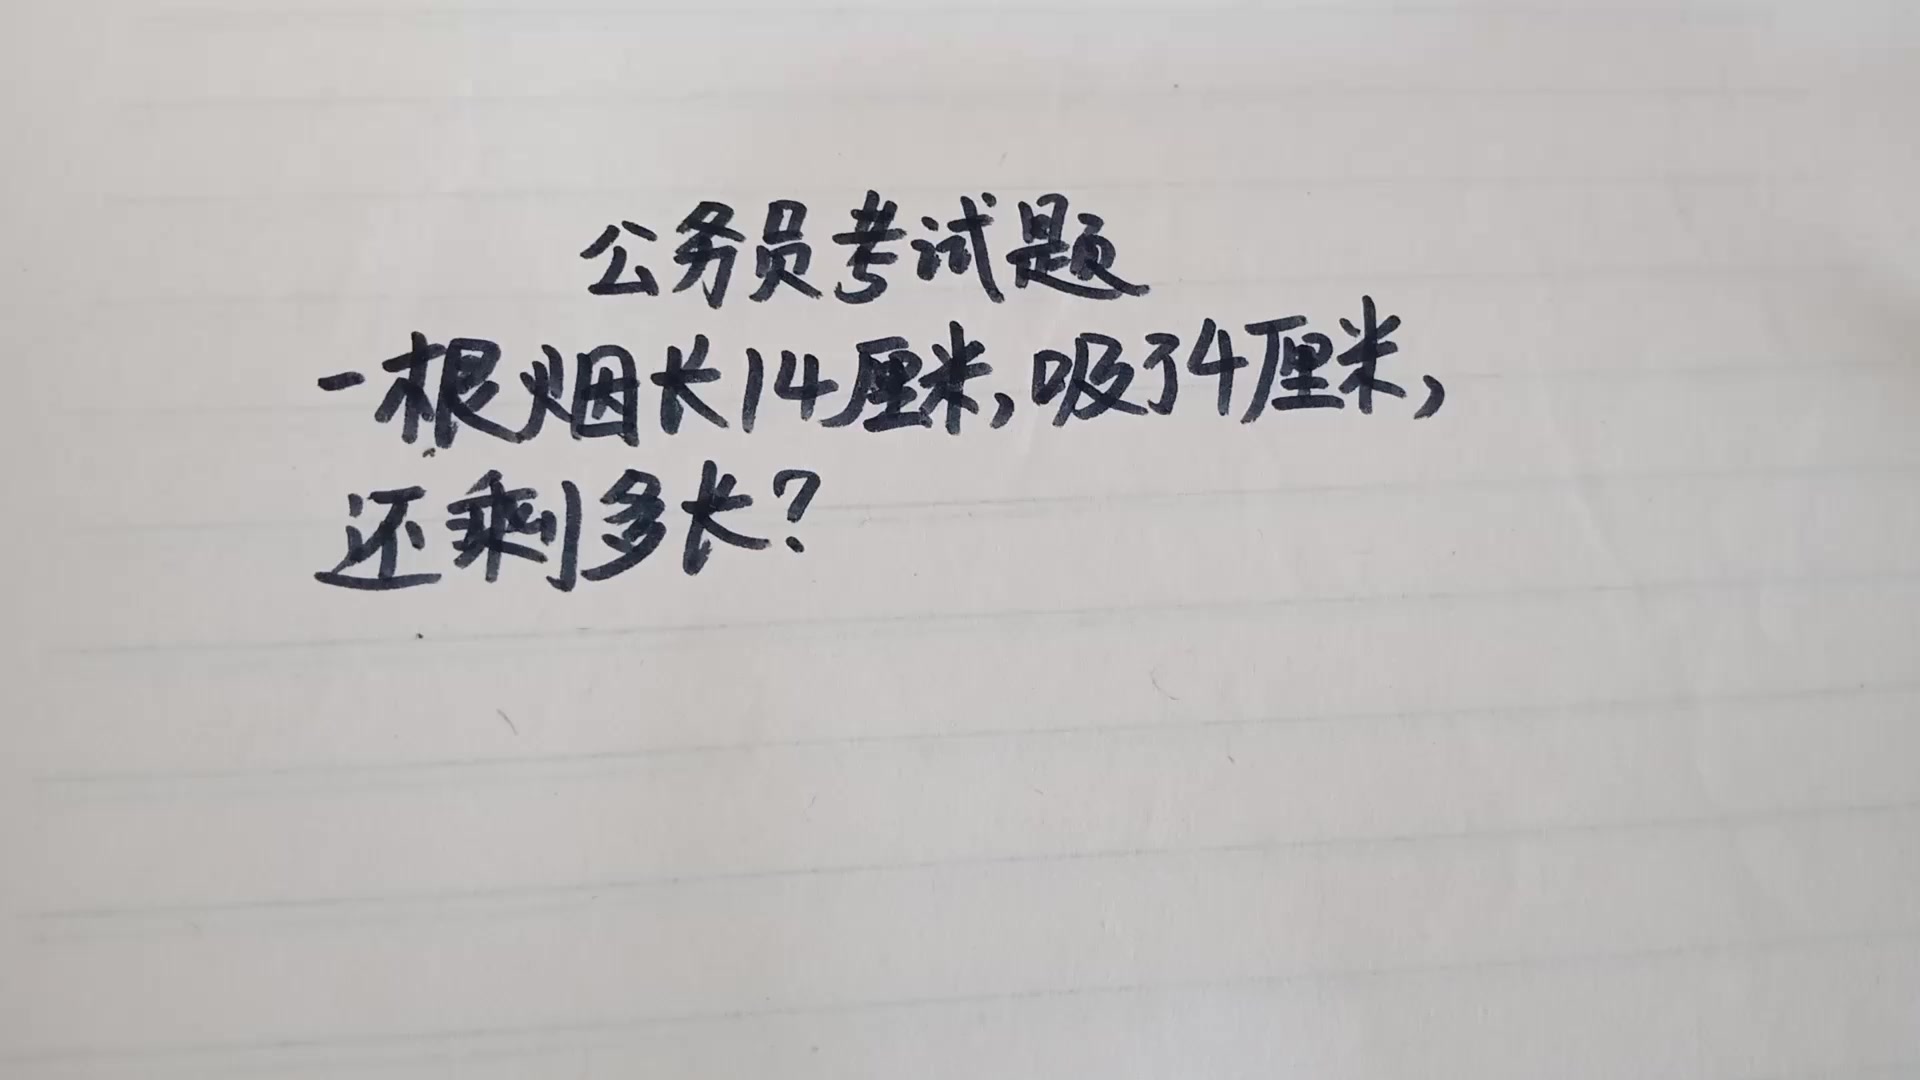 公务员考试题
一根烟长14厘米,吸了4厘米,
还剩多长?